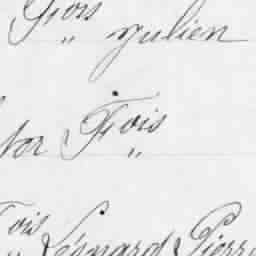 Fois Julien
"
tor Fois
"
Fois Léonard Pierr
"